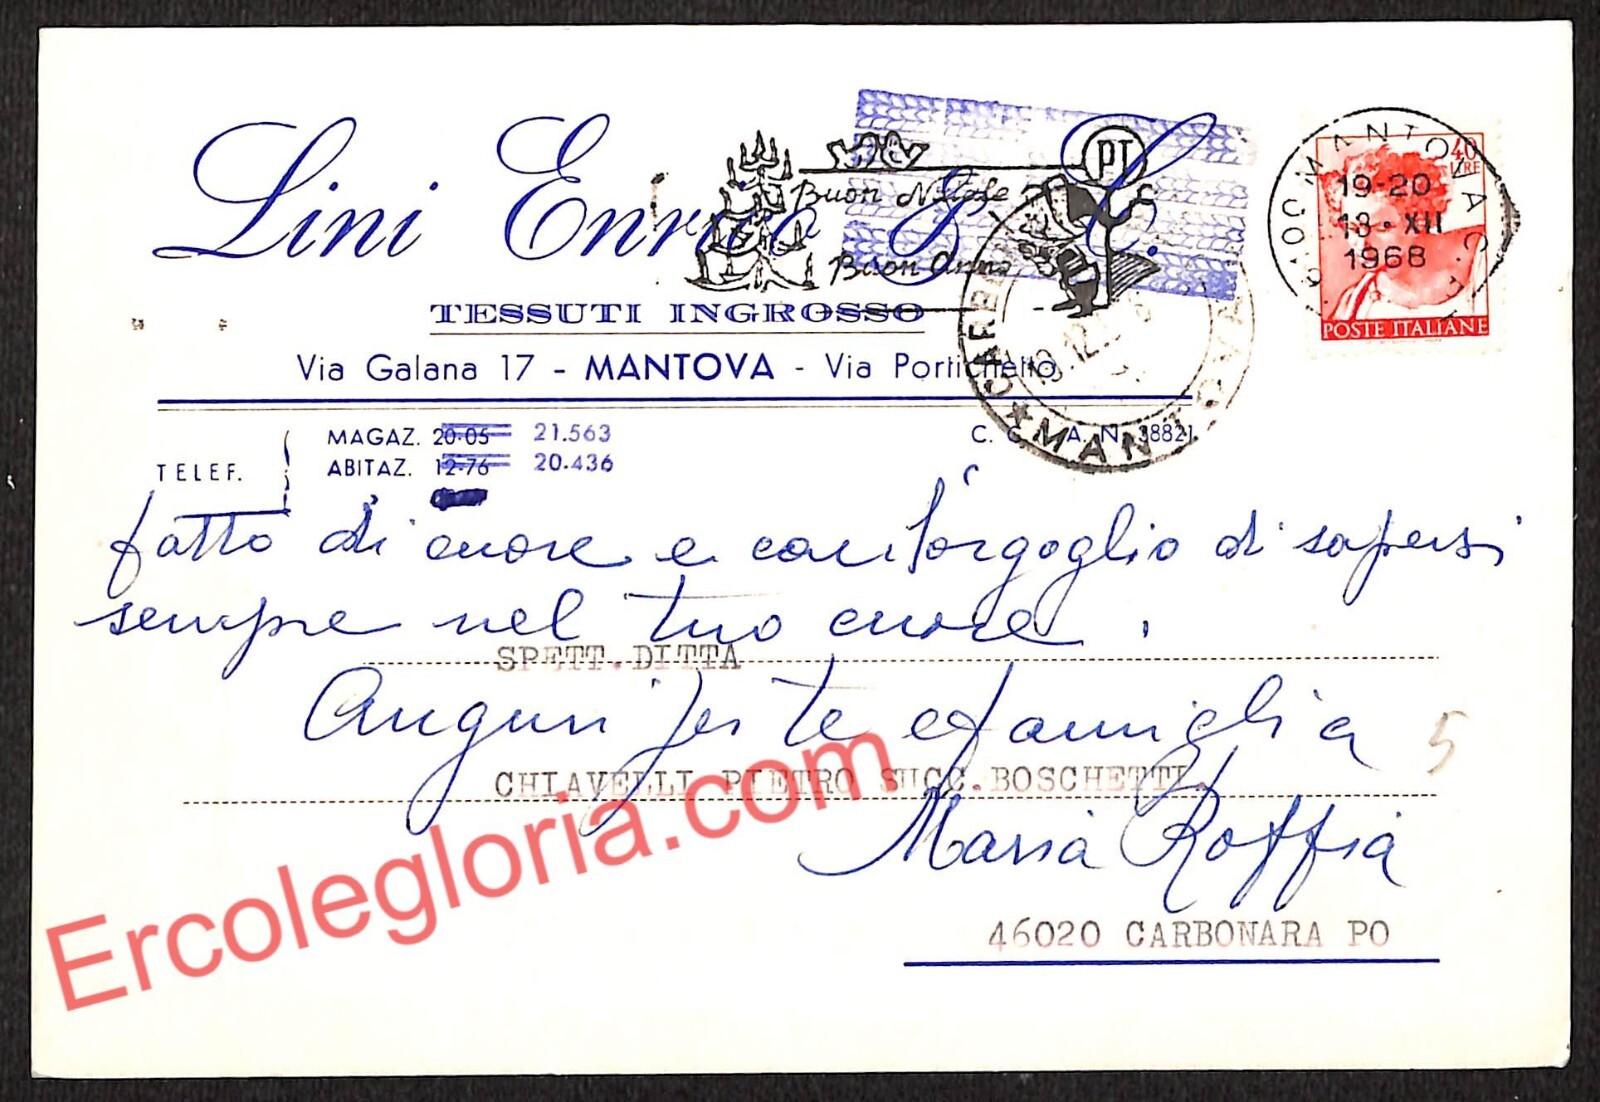 Lini Enrico & C.
TESSUTI INGROSSO
Via Galana 17 - MANTOVA - Via Portichetto
Buon Natale
Buon anno
PT
40
LIRE
POSTE ITALIANE
MANTOVA C.P.
19-20
18·XII
1968
CARBONARA
MANTOVA
TELEF.
MAGAZ. 20-05 21.563
ABITAZ. 12-76 20.436
C. C. A. N. 38821
fatto di cuore e con l'orgoglio di sapersi
sempre nel tuo cuore.
SPETT.DITTA
Auguri per te e famiglia
5
CHIAVELLI PIETRO SUCC.BOSCHETTI
Maria Roffia
46020 CARBONARA PO
Ercolegloria.com